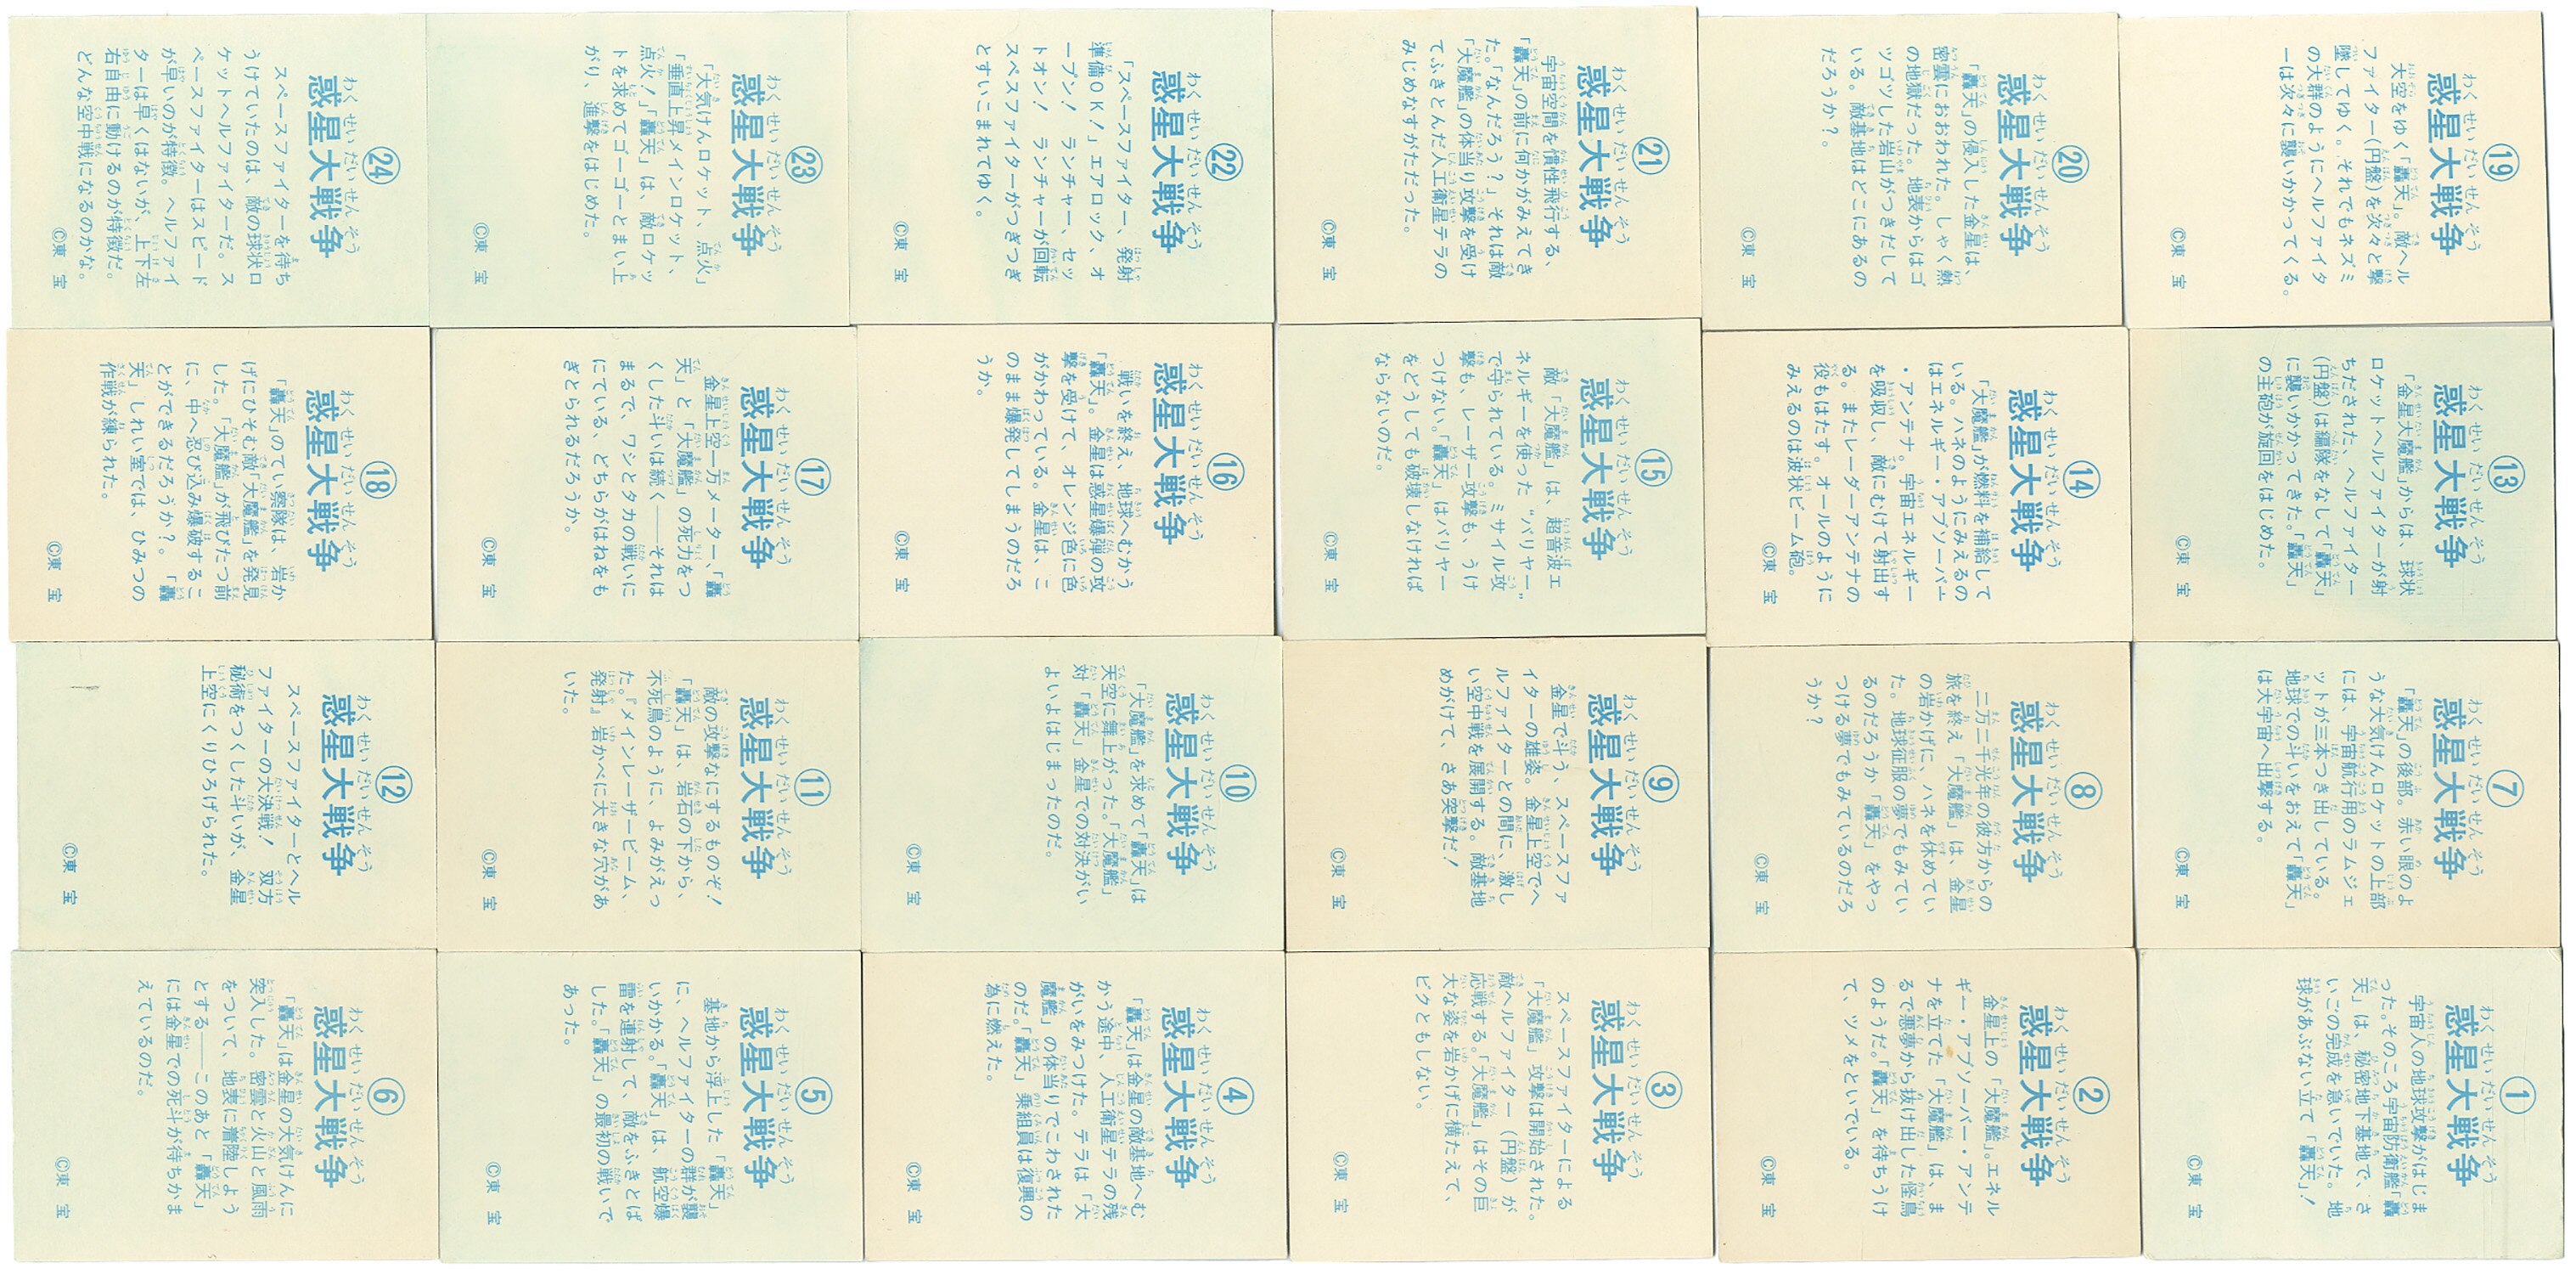 ①
惑星大戦争
わくせいだいせんそう
宇宙人の地球攻撃がはじま
った。そのころ宇宙防衛艦「轟
天」は、秘密地下基地で、さ
いごの完成を急いでいた。地
球があぶない立て「轟天」!
©東宝
②
惑星大戦争
わくせいだいせんそう
金星上の「大魔艦」。エネル
ギー・アブソーバー・アンテ
ナを立てた「大魔艦」は、ま
るで悪夢から抜け出した怪鳥
のようだ。「轟天」を待ちうけ
て、ツメをといでいる。
©東宝
③
惑星大戦争
わくせいだいせんそう
スペースファイターによる
「大魔艦」攻撃は開始された。
敵ヘルファイター(円盤)が
応戦する。「大魔艦」はその巨
大な姿を岩かげに横たえて、
ビクともしない。
©東宝
④
惑星大戦争
わくせいだいせんそう
「轟天」は金星の敵基地へむ
かう途中、人工衛星テラの残
がいをみつけた。テラは「大
魔艦」の体当りでこわされた
のだ。「轟天」乗組員は復興の
為に燃えた。
©東宝
⑤
惑星大戦争
わくせいだいせんそう
基地から浮上した「轟天」
に、ヘルファイターの群が襲
いかかる。「轟天」は、航空爆
雷を連射して、敵をふきとば
した。「轟天」の最初の戦いで
あった。
©東宝
⑥
惑星大戦争
わくせいだいせんそう
「轟天」は金星の大気けんに
突入した。密雲と火山と風雨
をついて、地表に着陸しよう
とする――このあと「轟天」
には金星での死斗が待ちかま
えているのだ。
©東宝
⑦
惑星大戦争
わくせいだいせんそう
「轟天」の後部。赤い眼のよ
うな大気けんロケットの上部
には、宇宙航行用のラムジェ
ットが三本つき出している。
地球での斗いをおえて「轟天」
は大宇宙へ出撃する。
©東宝
⑧
惑星大戦争
わくせいだいせんそう
二万二千光年の彼方からの
旅を終え「大魔艦」は、金星
の岩かげに、ハネを休めてい
た。地球征服の夢でもみてい
るのだろうか「轟天」をやっ
つける夢でもみているのだろ
うか?
©東宝
⑨
惑星大戦争
わくせいだいせんそう
金星で斗う、スペースファ
イターの雄姿。金星上空でヘ
ルファイターとの間に、激し
い空中戦を展開する。敵基地
めがけて、さあ突撃だ!
©東宝
⑩
惑星大戦争
わくせいだいせんそう
「大魔艦」を求めて「轟天」は
天空に舞上がった。「大魔艦」
対「轟天」金星での対決がい
よいよはじまったのだ。
©東宝
⑪
惑星大戦争
わくせいだいせんそう
敵の攻撃なにするものぞ!
「轟天」は、岩石の下から、
不死鳥のように、よみがえっ
た。『メインレーザービーム、
発射』岩かべに大きな穴があ
いた。
©東宝
⑫
惑星大戦争
わくせいだいせんそう
スペースファイターとヘル
ファイターの大決戦! 双方
秘術をつくした斗いが、金星
上空にくりひろげられた。
©東宝
⑬
惑星大戦争
わくせいだいせんそう
「金星大魔艦」からは、球状
ロケットヘルファイターが射
ちだされた、ヘルファイター
(円盤)は編隊をなして「轟天」
に襲いかかってきた。「轟天」
の主砲が旋回をはじめた。
©東宝
⑭
惑星大戦争
わくせいだいせんそう
「大魔艦」が燃料を補給して
いる。ハネのようにみえるの
はエネルギー・アブソーバー
・アンテナ。宇宙エネルギー
を吸収し、敵にむけて射出す
る。またレーダーアンテナの
役もはたす。オールのように
みえるのは波状ビーム砲。
©東宝
⑮
惑星大戦争
わくせいだいせんそう
敵「大魔艦」は、超音波エ
ネルギーを使った“バリヤー”
で守られている。ミサイル攻
撃も、レーザー攻撃も、うけ
つけない。「轟天」はバリヤー
をどうしても破壊しなければ
ならないのだ。
©東宝
⑯
惑星大戦争
わくせいだいせんそう
戦いを終え、地球へむかう
「轟天」。金星は惑星爆弾の攻
撃を受けて、オレンジ色に色
がかわっている。金星は、こ
のまま爆発してしまうのだろ
うか。
©東宝
⑰
惑星大戦争
わくせいだいせんそう
金星上空一万メーター、「轟
天」と「大魔艦」の死力をつ
くした斗いは続く――それは
まるで、ワシとタカの戦いに
にている、どちらがはねをも
ぎとられるだろうか。
©東宝
⑱
惑星大戦争
わくせいだいせんそう
「轟天」のてい察隊は、岩か
げにひそむ敵「大魔艦」を発見
した。「大魔艦」が飛びたつ前
に、中へ忍び込み爆破するこ
とができるだろうか?。「轟
天」しれい室では、ひみつの
作戦が練られた。
©東宝
⑲
惑星大戦争
わくせいだいせんそう
大空をゆく「轟天」。敵ヘル
ファイター(円盤)を次々と撃
墜してゆく。それでもネズミ
の大群のようにヘルファイタ
ーは次々に襲いかかってくる。
©東宝
⑳
惑星大戦争
わくせいだいせんそう
「轟天」の侵入した金星は、
密雲におおわれた。しゃく熱
の地獄だった。地表からはゴ
ツゴツした岩山がつきだして
いる。敵基地はどこにあるの
だろうか?。
©東宝
㉑
惑星大戦争
わくせいだいせんそう
宇宙空間を慣性飛行する、
「轟天」の前に何かがみえてき
た。「なんだろう?」それは敵
「大魔艦」の体当り攻撃を受け
てふきとんだ人工衛星テラの
みじめなすがただった。
©東宝
㉒
惑星大戦争
わくせいだいせんそう
「スペースファイター、発射
準備OK!」エアロック、オ
ープン! ランチャー、セッ
トオン! ランチャーが回転
スペスファイターがつぎつぎ
とすいこまれてゆく。
©東宝
㉓
惑星大戦争
わくせいだいせんそう
「大気けんロケット、点火」
「垂直上昇メインロケット、
点火!」「轟天」は、敵ロケッ
トを求めてゴーゴーとまい上
がり、進撃をはじめた。
©東宝
㉔
惑星大戦争
わくせいだいせんそう
スペースファイターを待ち
うけていたのは、敵の球状ロ
ケットヘルファイターだ。ス
ペースファイターはスピード
が早いのが特徴。ヘルファイ
ターは早くはないが、上下左
右自由に動けるのが特徴だ。
どんな空中戦になるのかな。
©東宝